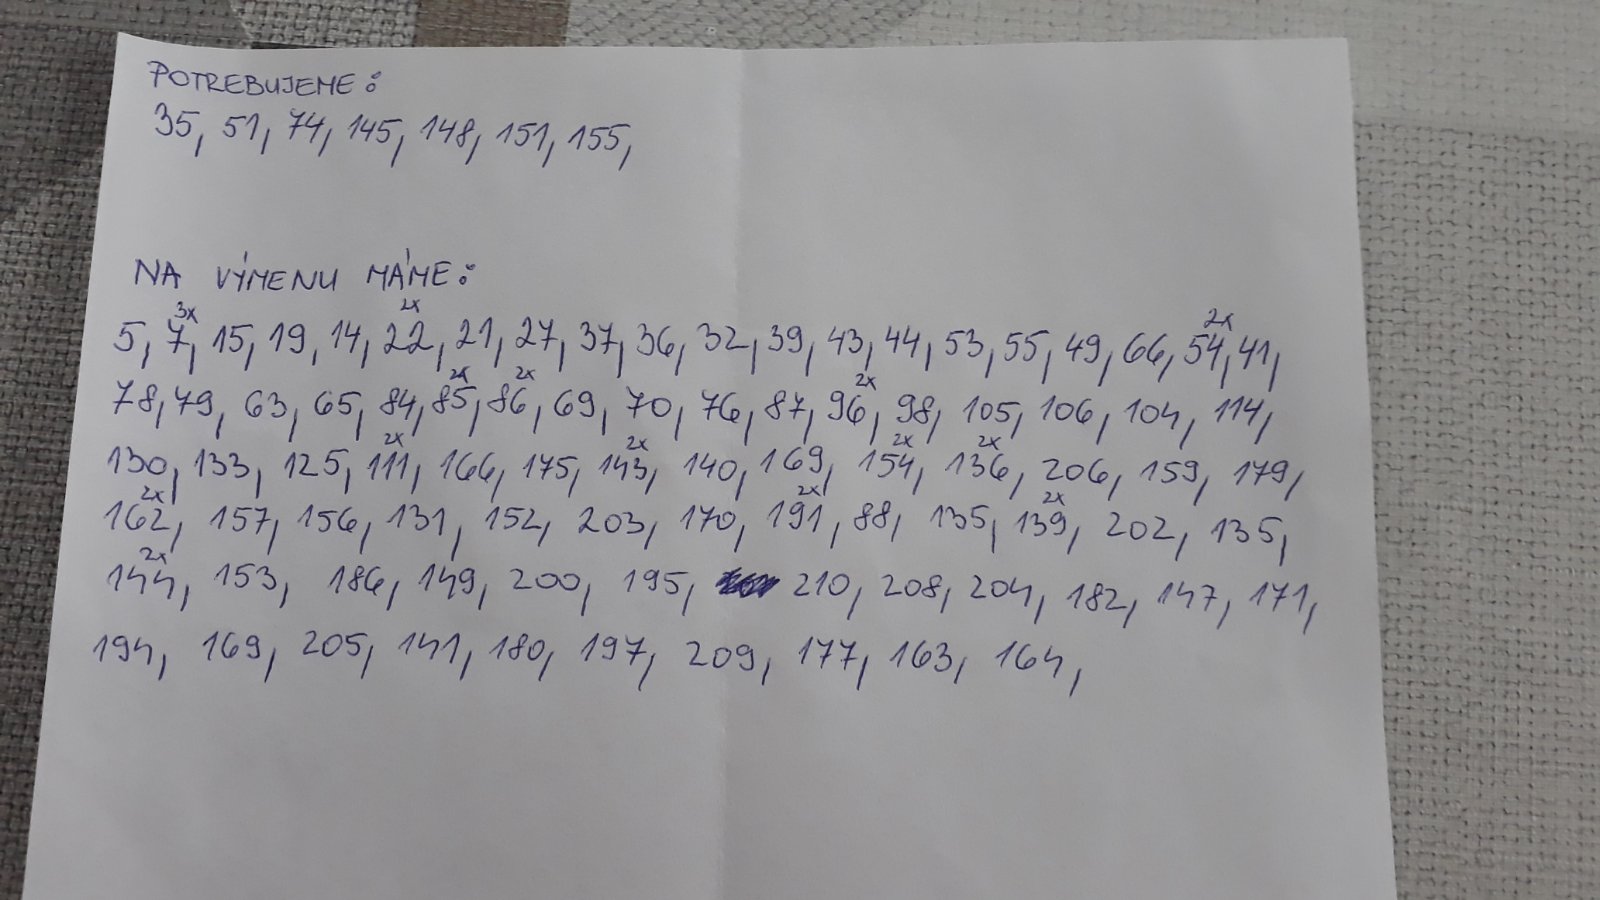 POTREBUJEME:
35, 51, 74, 145, 148, 151, 155,
NA VÝMENU MÁME:
5, 7 3x, 15, 19, 14, 22 2x, 21, 27, 37, 36, 32, 39, 43, 44, 53, 55, 49, 66, 54 2x, 41,
78, 79, 63, 65, 84, 85 2x, 86 2x, 69, 70, 76, 87, 96 2x, 98, 105, 106, 104, 114,
130, 133, 125, 111 2x, 166, 175, 143 2x, 140, 169, 154 2x, 136 2x, 206, 159, 179,
162 2x, 157, 156, 131, 152, 203, 170, 191 2x, 88, 135, 139 2x, 202, 135,
144 2x, 153, 186, 149, 200, 195, 210, 208, 204, 182, 147, 171,
194, 169, 205, 141, 180, 197, 209, 177, 163, 164,